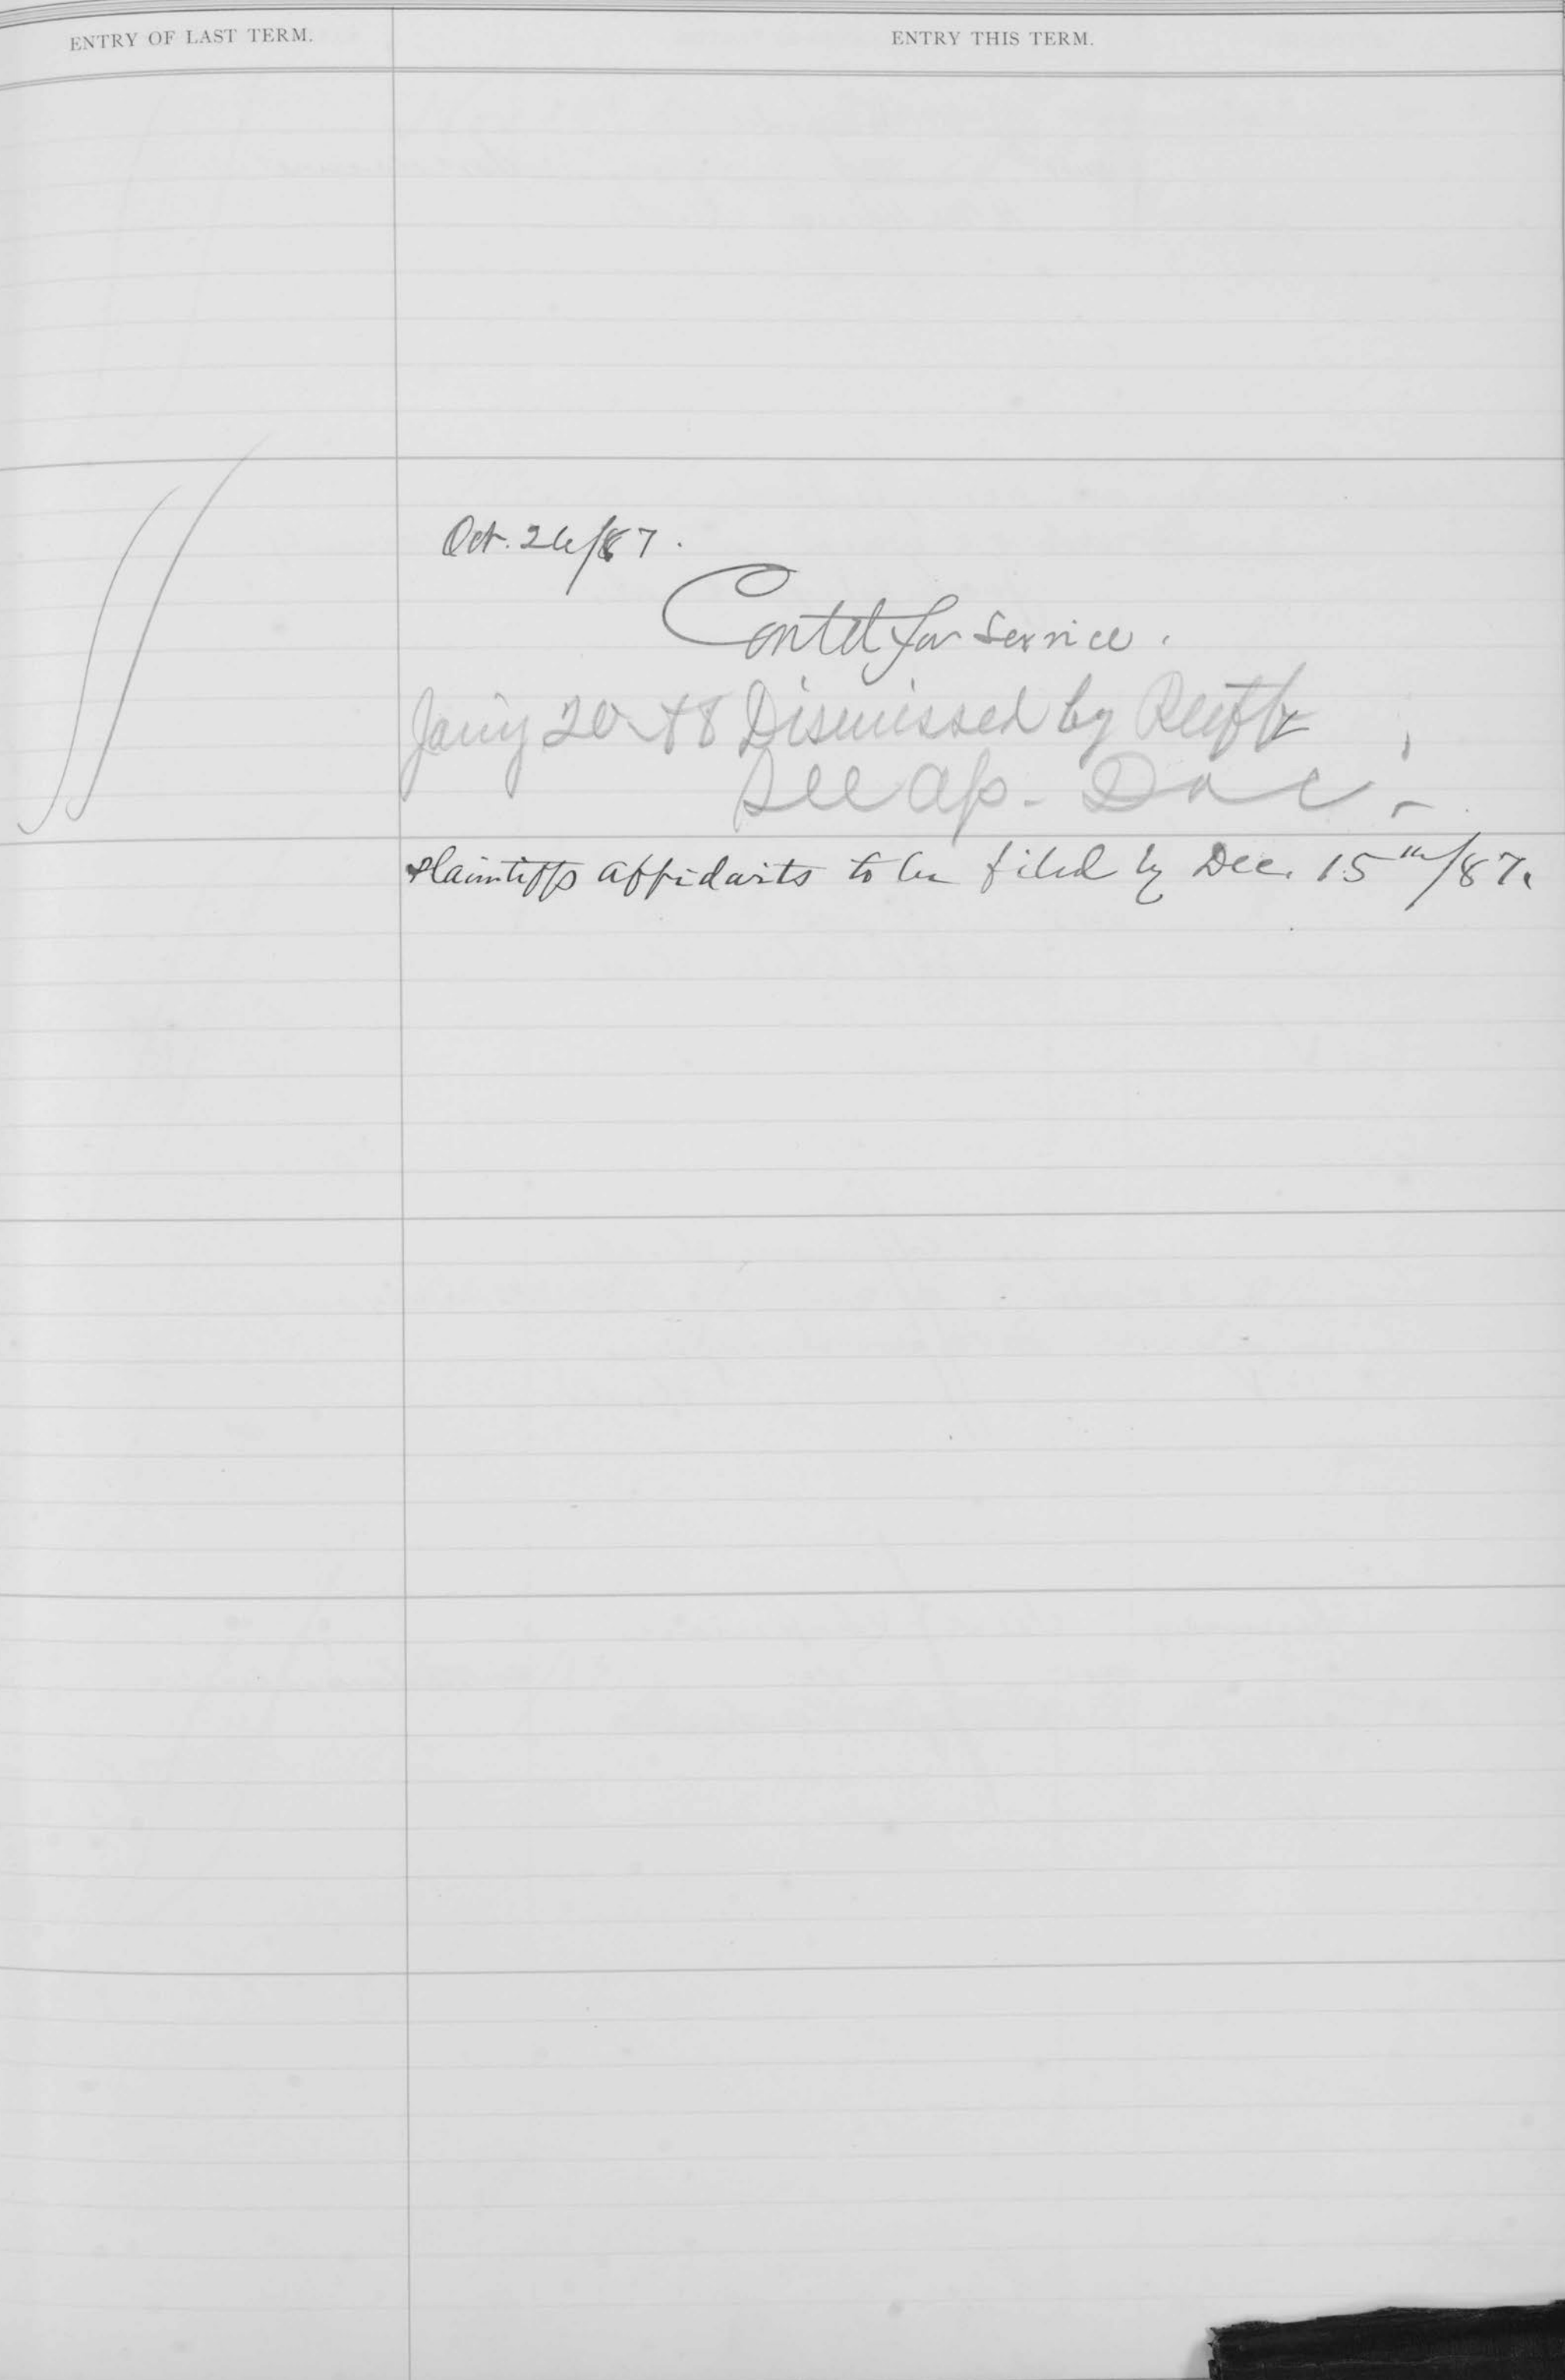 ENTRY OF LAST TERM.
ENTRY THIS TERM.
Oct. 26/87.
Contd for service.
Jany 20 88 Dismissed by Plffs
See Ap. Doc.
Plaintiffs affidavits to be filed by Dec. 15th/87.